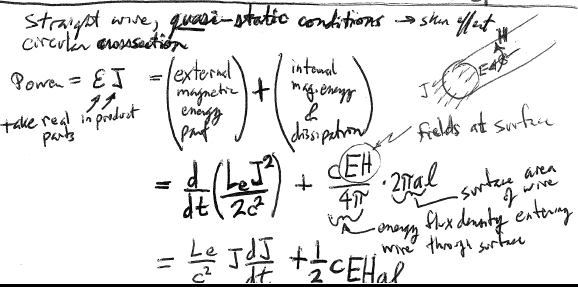 straight wire, quasi-static conditions → skin effect
circular crosssection
Power = ℰJ = (external magnetic energy part) + (internal mag. energy & dissipation)
take real parts in product
H
E
J
fields at surface
= d/dt (LeJ²/2c²) + cEH/4π · 2πal
surface area of wire
energy flux density entering wire through surface
= Le/c² J dJ/dt + 1/2 cEHal